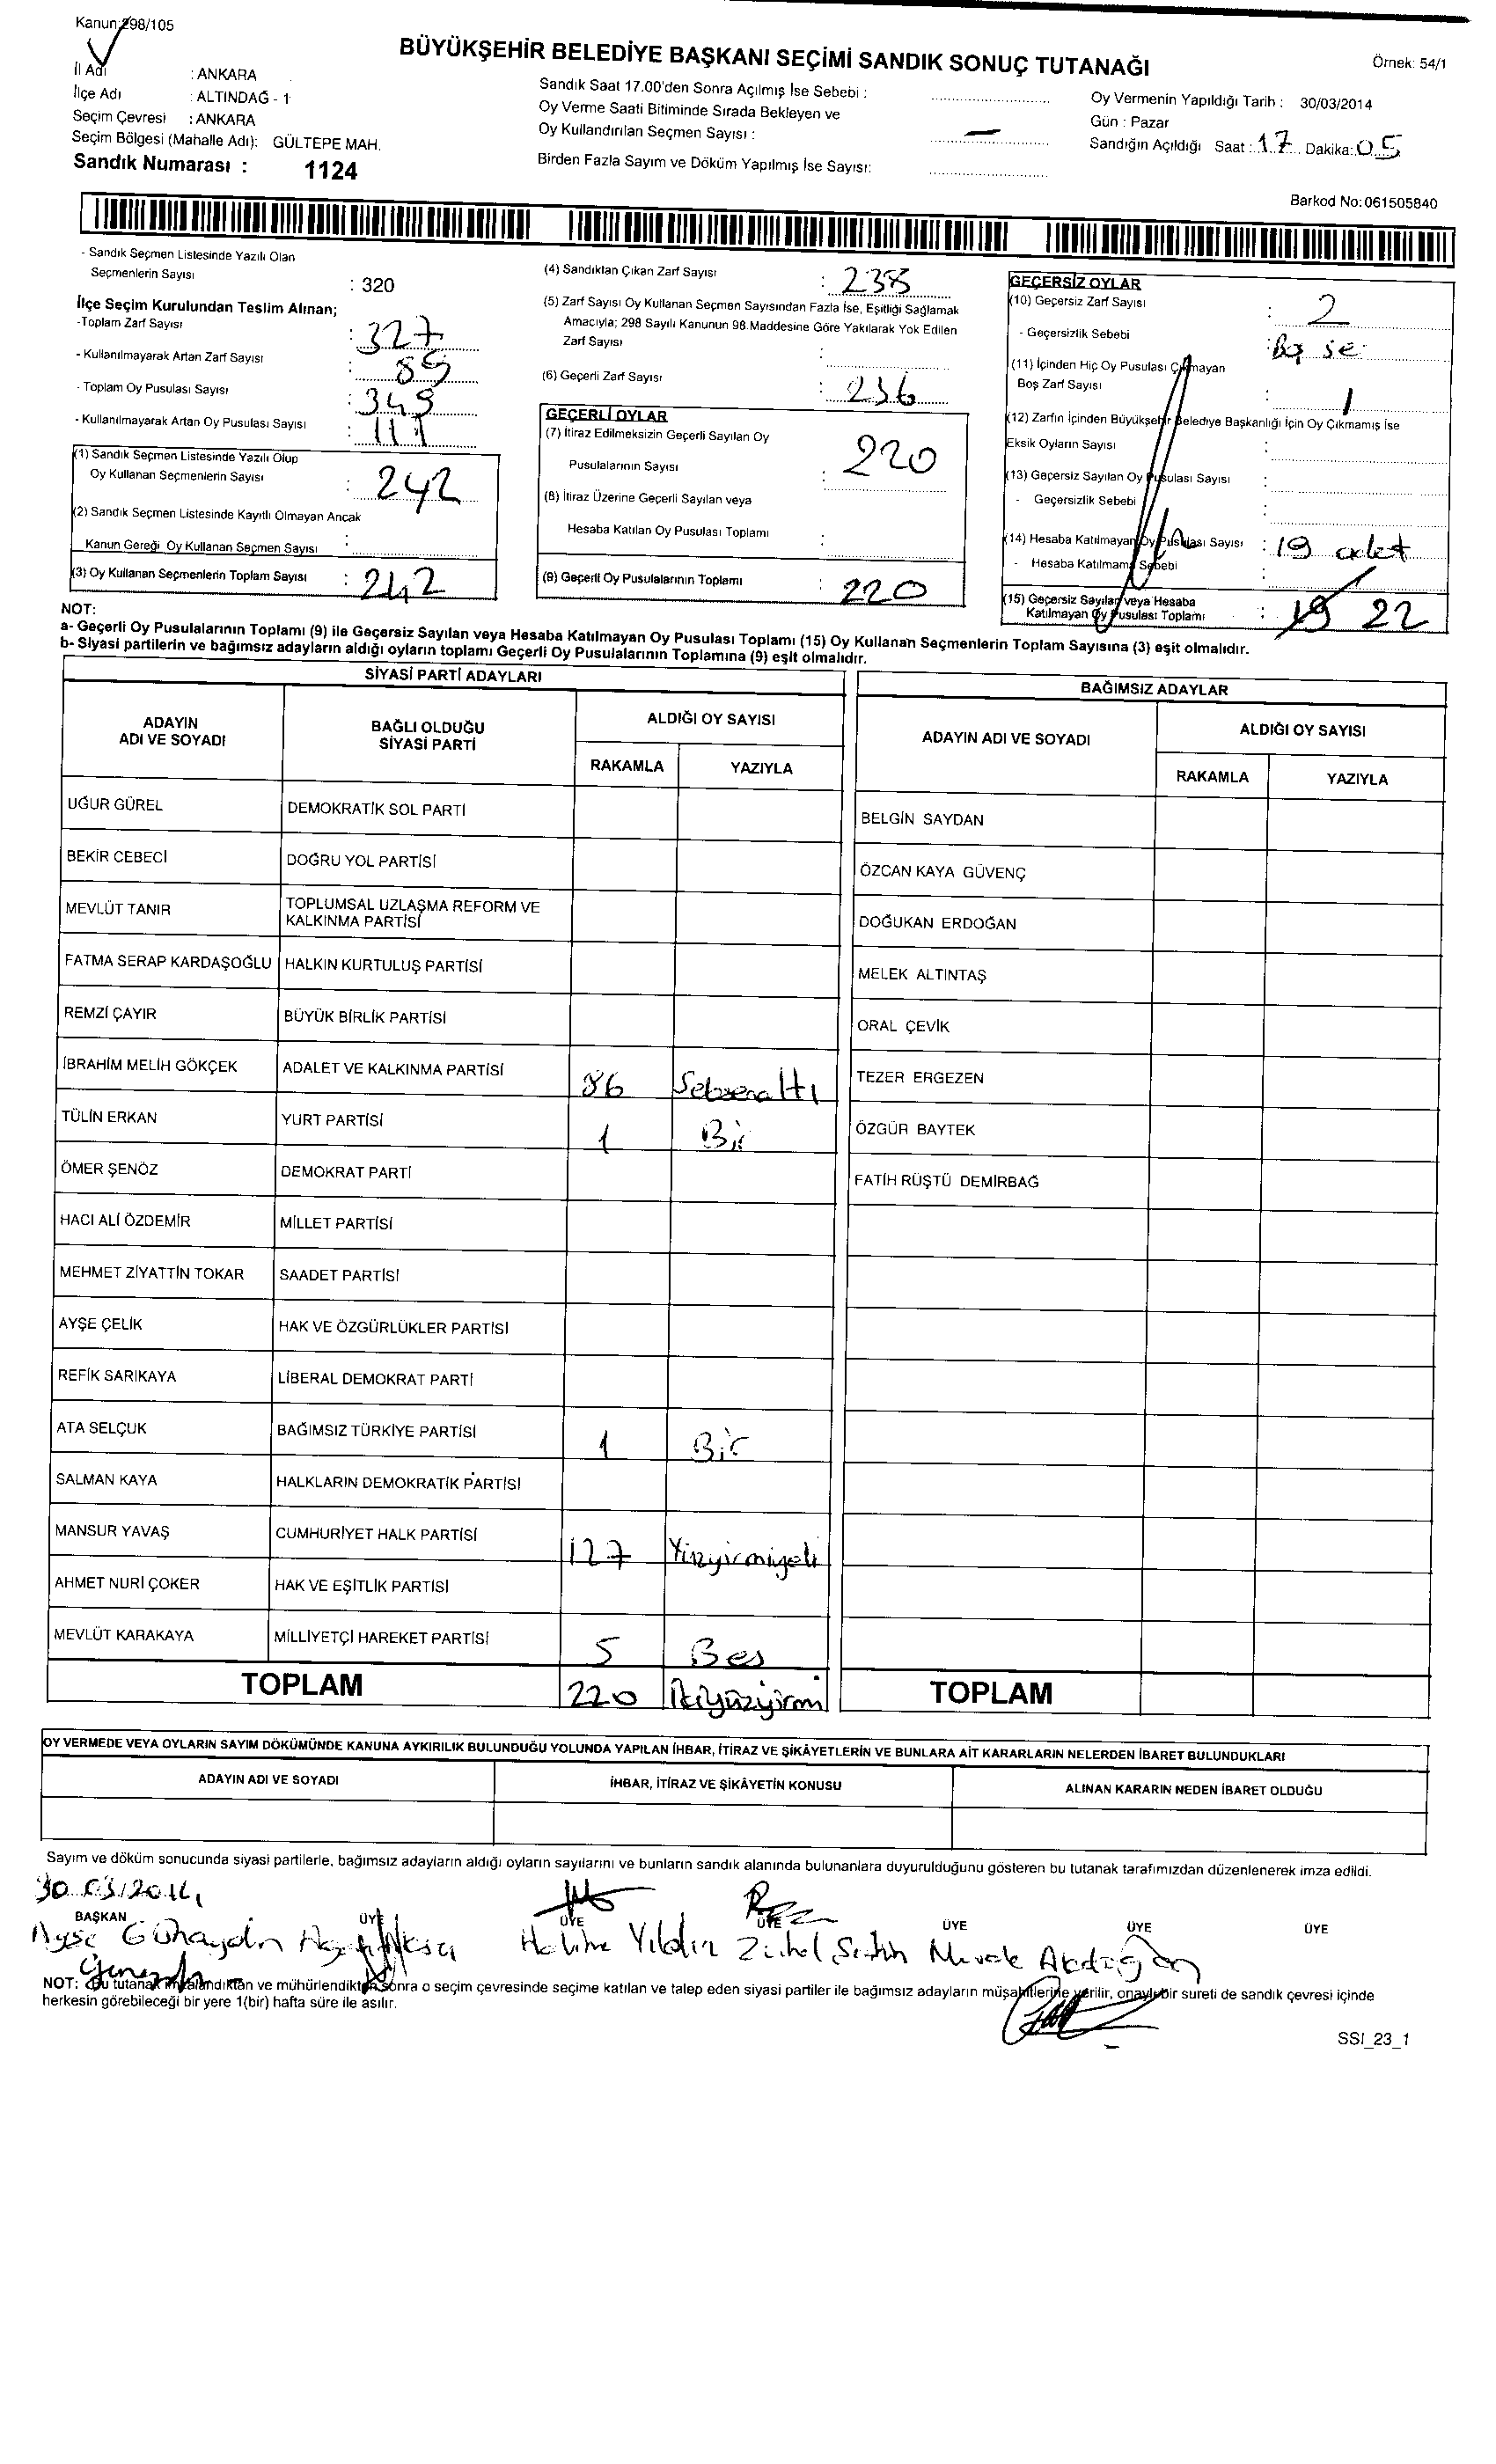 Kanun:298/105
BÜYÜKŞEHİR BELEDİYE BAŞKANI SEÇİMİ SANDIK SONUÇ TUTANAĞI
Örnek: 54/1
İl Adı : ANKARA
İlçe Adı : ALTINDAĞ - 1
Seçim Çevresi : ANKARA
Seçim Bölgesi (Mahalle Adı): GÜLTEPE MAH.
Sandık Numarası : 1124
Sandık Saat 17.00'den Sonra Açılmış İse Sebebi :
Oy Verme Saati Bitiminde Sırada Bekleyen ve
Oy Kullandırılan Seçmen Sayısı : —
Birden Fazla Sayım ve Döküm Yapılmış İse Sayısı:
Oy Vermenin Yapıldığı Tarih : 30/03/2014
Gün : Pazar
Sandığın Açıldığı Saat : 17 Dakika: 05
Barkod No: 061505840
- Sandık Seçmen Listesinde Yazılı Olan
Seçmenlerin Sayısı : 320
İlçe Seçim Kurulundan Teslim Alınan;
-Toplam Zarf Sayısı : 327
- Kullanılmayarak Artan Zarf Sayısı : 89
- Toplam Oy Pusulası Sayısı : 349
- Kullanılmayarak Artan Oy Pusulası Sayısı : 111
(1) Sandık Seçmen Listesinde Yazılı Olup
Oy Kullanan Seçmenlerin Sayısı : 242
(2) Sandık Seçmen Listesinde Kayıtlı Olmayan Ancak
Kanun Gereği Oy Kullanan Seçmen Sayısı :
(3) Oy Kullanan Seçmenlerin Toplam Sayısı : 242
(4) Sandıktan Çıkan Zarf Sayısı : 238
(5) Zarf Sayısı Oy Kullanan Seçmen Sayısından Fazla İse, Eşitliği Sağlamak
Amacıyla; 298 Sayılı Kanunun 98.Maddesine Göre Yakılarak Yok Edilen
Zarf Sayısı :
(6) Geçerli Zarf Sayısı : 236
GEÇERLİ OYLAR
(7) İtiraz Edilmeksizin Geçerli Sayılan Oy
Pusulalarının Sayısı : 220
(8) İtiraz Üzerine Geçerli Sayılan veya
Hesaba Katılan Oy Pusulası Toplamı :
(9) Geçerli Oy Pusulalarının Toplamı : 220
GEÇERSİZ OYLAR
(10) Geçersiz Zarf Sayısı : 2
- Geçersizlik Sebebi :
(11) İçinden Hiç Oy Pusulası Çıkmayan
Boş Zarf Sayısı : 1
(12) Zarfın İçinden Büyükşehir Belediye Başkanlığı İçin Oy Çıkmamış İse
Eksik Oyların Sayısı :
(13) Geçersiz Sayılan Oy Pusulası Sayısı :
- Geçersizlik Sebebi :
(14) Hesaba Katılmayan Oy Pusulası Sayısı : 19 adet
- Hesaba Katılmama Sebebi :
(15) Geçersiz Sayılan veya Hesaba
Katılmayan Oy Pusulası Toplamı : 19 22
NOT:
a- Geçerli Oy Pusulalarının Toplamı (9) ile Geçersiz Sayılan veya Hesaba Katılmayan Oy Pusulası Toplamı (15) Oy Kullanan Seçmenlerin Toplam Sayısına (3) eşit olmalıdır.
b- Siyasi partilerin ve bağımsız adayların aldığı oyların toplamı Geçerli Oy Pusulalarının Toplamına (9) eşit olmalıdır.
SİYASİ PARTİ ADAYLARI
ADAYIN ADI VE SOYADI
BAĞLI OLDUĞU SİYASİ PARTİ
ALDIĞI OY SAYISI
RAKAMLA YAZIYLA
UĞUR GÜREL DEMOKRATİK SOL PARTİ
BEKİR CEBECİ DOĞRU YOL PARTİSİ
MEVLÜT TANIR TOPLUMSAL UZLAŞMA REFORM VE KALKINMA PARTİSİ
FATMA SERAP KARDAŞOĞLU HALKIN KURTULUŞ PARTİSİ
REMZİ ÇAYIR BÜYÜK BİRLİK PARTİSİ
İBRAHİM MELİH GÖKÇEK ADALET VE KALKINMA PARTİSİ 86 Seksenaltı
TÜLİN ERKAN YURT PARTİSİ 1 Bir
ÖMER ŞENÖZ DEMOKRAT PARTİ
HACI ALİ ÖZDEMİR MİLLET PARTİSİ
MEHMET ZİYATTİN TOKAR SAADET PARTİSİ
AYŞE ÇELİK HAK VE ÖZGÜRLÜKLER PARTİSİ
REFİK SARIKAYA LİBERAL DEMOKRAT PARTİ
ATA SELÇUK BAĞIMSIZ TÜRKİYE PARTİSİ 1 Bir
SALMAN KAYA HALKLARIN DEMOKRATİK PARTİSİ
MANSUR YAVAŞ CUMHURİYET HALK PARTİSİ 127 Yüzyirmiyedi
AHMET NURİ ÇOKER HAK VE EŞİTLİK PARTİSİ
MEVLÜT KARAKAYA MİLLİYETÇİ HAREKET PARTİSİ 5 Bes
TOPLAM 220 İkiyüzyirmi
BAĞIMSIZ ADAYLAR
ADAYIN ADI VE SOYADI
ALDIĞI OY SAYISI
RAKAMLA YAZIYLA
BELGİN SAYDAN
ÖZCAN KAYA GÜVENÇ
DOĞUKAN ERDOĞAN
MELEK ALTINTAŞ
ORAL ÇEVİK
TEZER ERGEZEN
ÖZGÜR BAYTEK
FATİH RÜŞTÜ DEMİRBAĞ
TOPLAM
OY VERMEDE VEYA OYLARIN SAYIM DÖKÜMÜNDE KANUNA AYKIRILIK BULUNDUĞU YOLUNDA YAPILAN İHBAR, İTİRAZ VE ŞİKÂYETLERİN VE BUNLARA AİT KARARLARIN NELERDEN İBARET BULUNDUKLARI
ADAYIN ADI VE SOYADI İHBAR, İTİRAZ VE ŞİKÂYETİN KONUSU ALINAN KARARIN NEDEN İBARET OLDUĞU
Sayım ve döküm sonucunda siyasi partilerle, bağımsız adayların aldığı oyların sayılarını ve bunların sandık alanında bulunanlara duyurulduğunu gösteren bu tutanak tarafımızdan düzenlenerek imza edildi.
30.03/2014
BAŞKAN ÜYE ÜYE ÜYE ÜYE ÜYE ÜYE
Ayşe Günaydın Halime Yıldız
NOT: Bu tutanak imzalandıktan ve mühürlendikten sonra o seçim çevresinde seçime katılan ve talep eden siyasi partiler ile bağımsız adayların müşahitlerine verilir, onaylı bir sureti de sandık çevresi içinde
herkesin görebileceği bir yere 1(bir) hafta süre ile asılır.
SSI_23_1